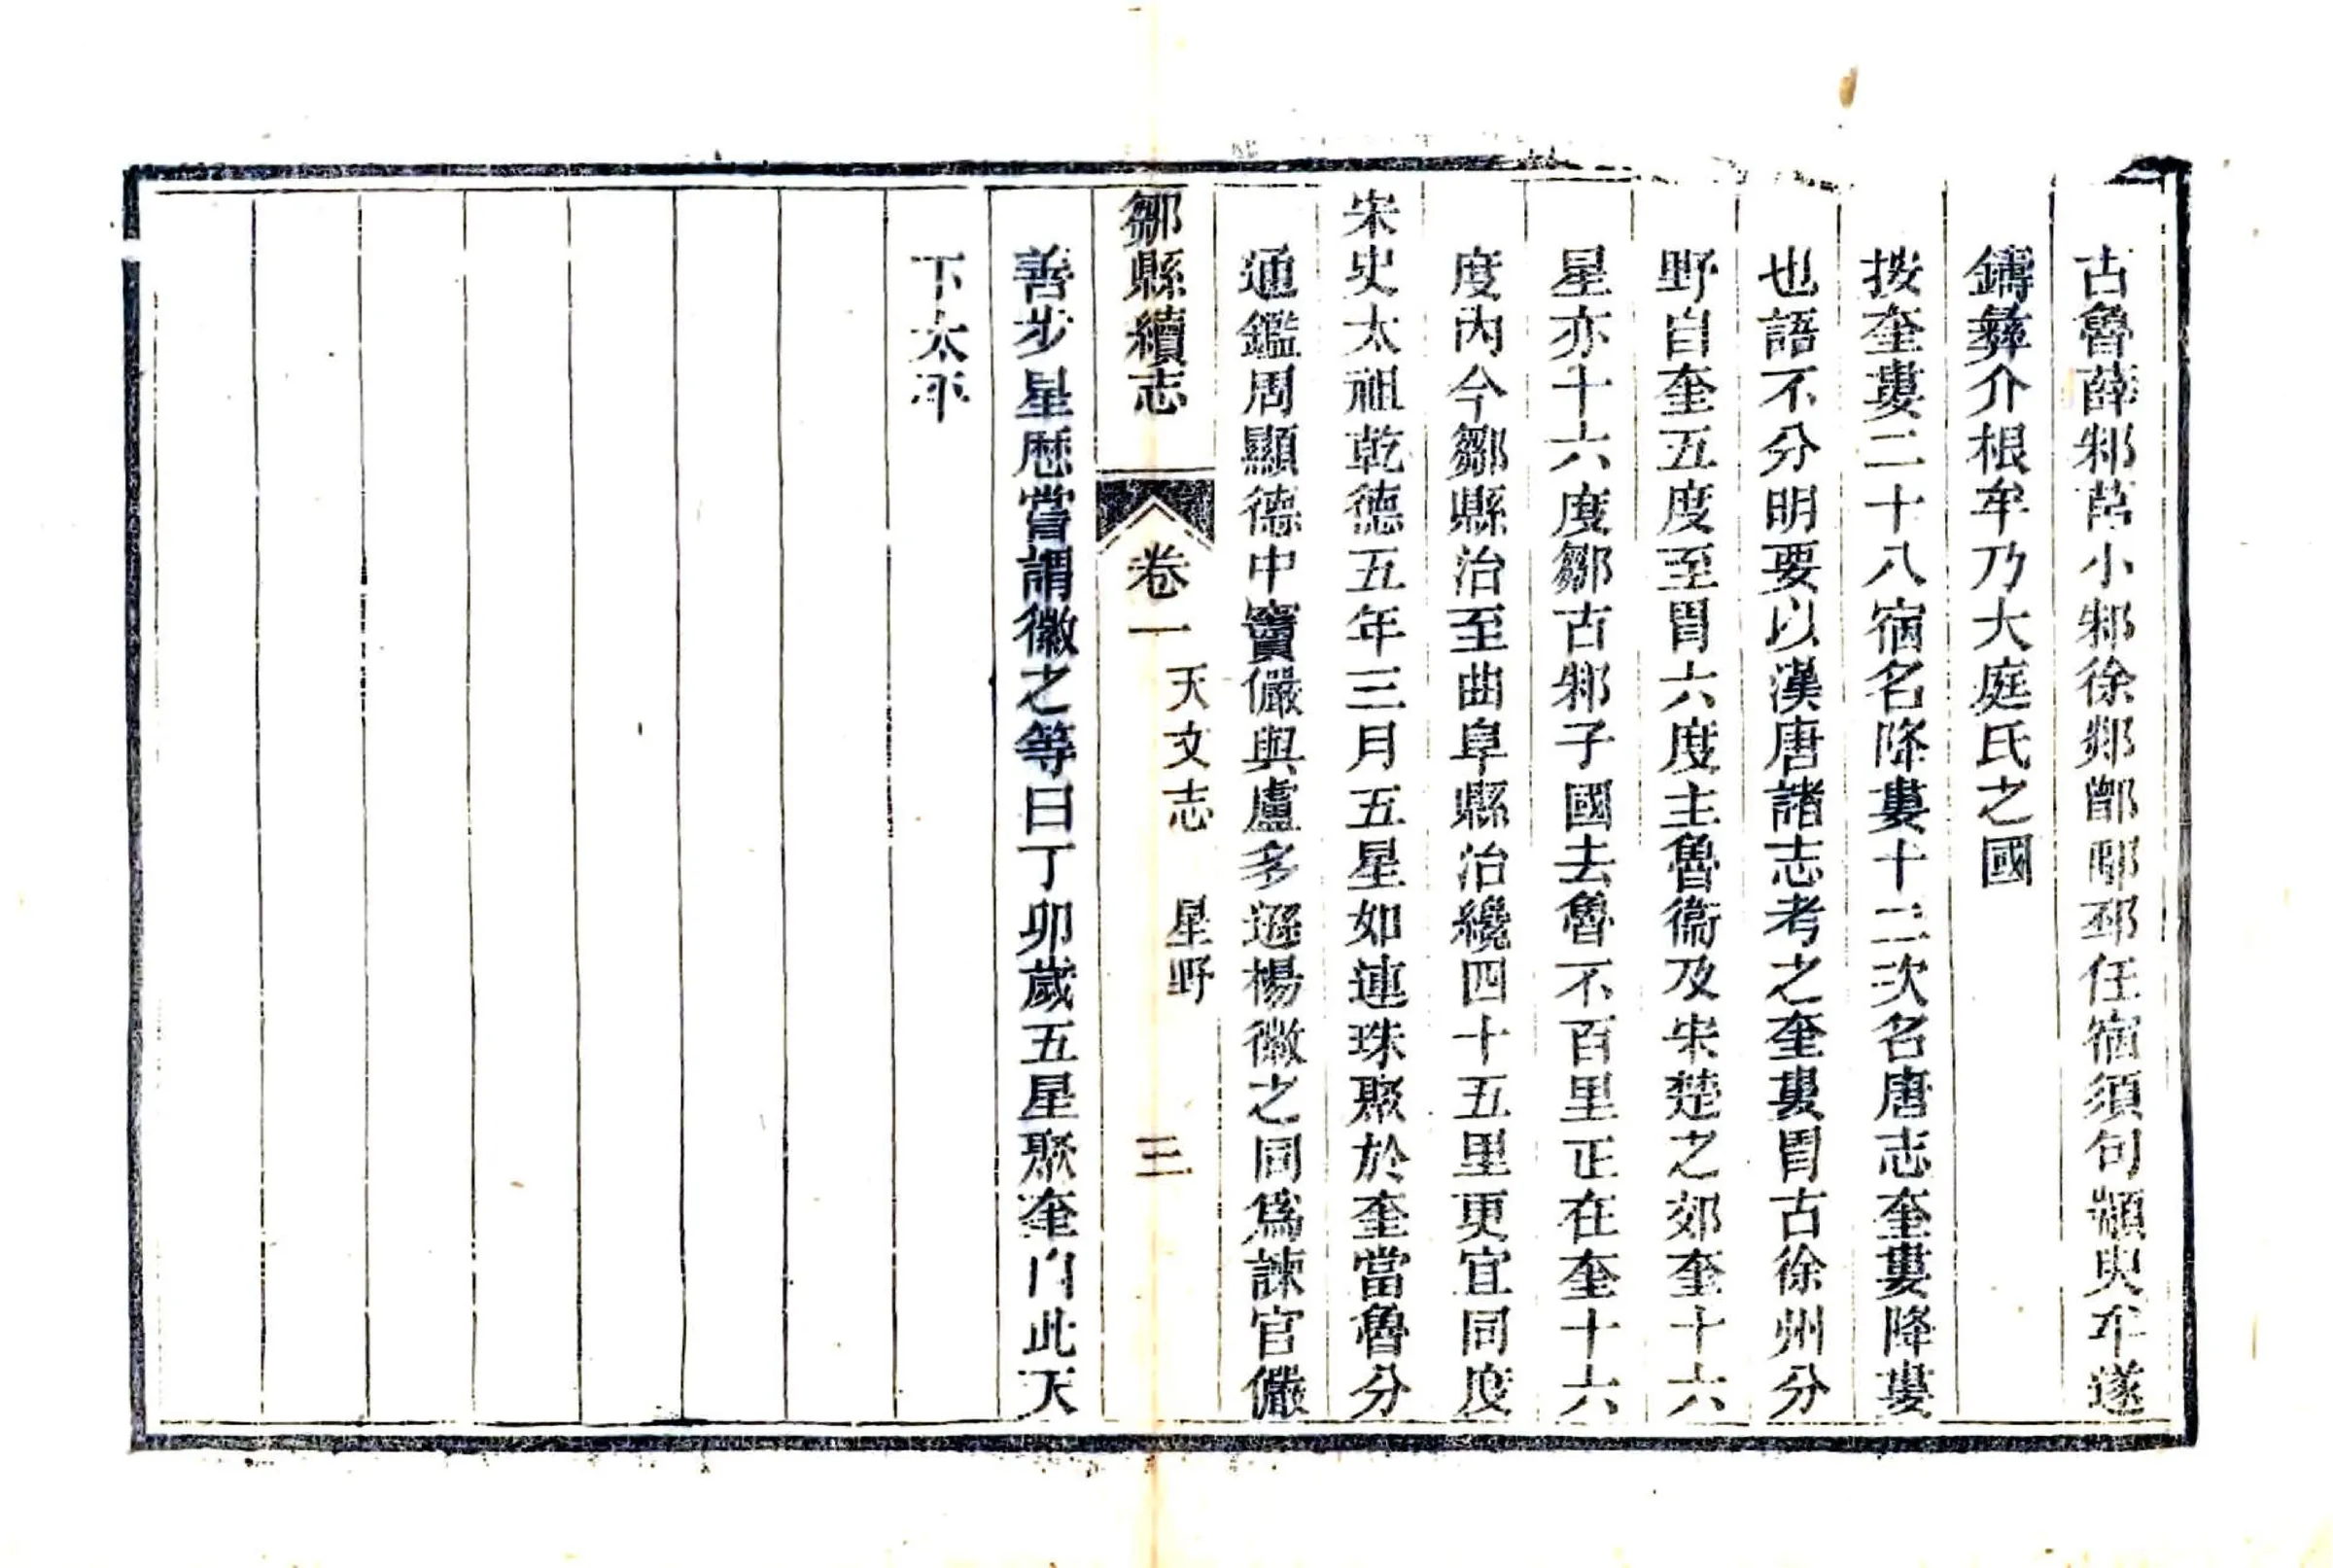 古魯薛邾莒小邾徐郯鄫鄅邳任宿須句顓臾牟遂
鑄彝介根牟乃大庭氏之國
按奎婁二十八宿名降婁十二次名唐志奎婁降婁
也語不分明要以漢唐諸志考之奎婁胃古徐州分
野自奎五度至胃六度主魯衞及宋楚之郊奎十六
星亦十六度鄒古邾子國去魯不百里正在奎十六
度內今鄒縣治至曲阜縣治纔四十五里更宜同度
宋史太祖乾德五年三月五星如連珠聚於奎當魯分
通鑑周顯德中竇儼與盧多遜楊徽之同爲諫官儼
鄒縣續志 卷一 天文志 星野 三
善步星歷嘗謂徽之等曰丁卯歲五星聚奎自此天
下太平